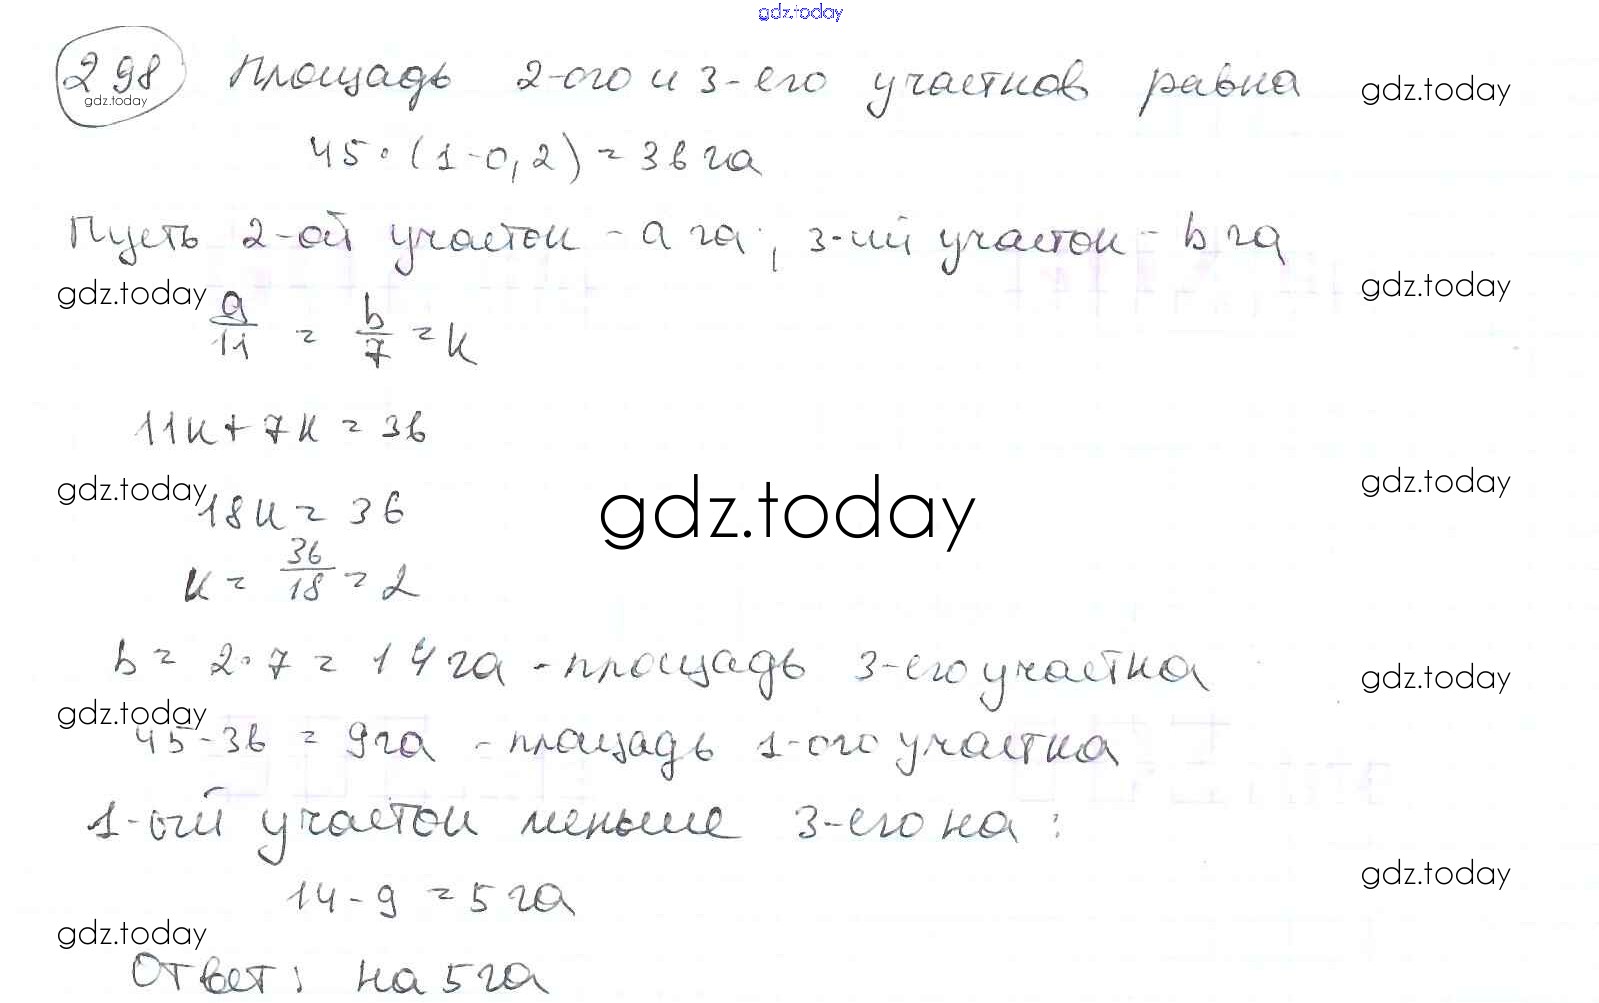 gdz.today
298 Площадь 2-ого и 3-его участков равна
gdz.today
gdz.today
45·(1-0,2) = 36 га
Пусть 2-ой участок - a га; 3-ий участок - b га
gdz.today
gdz.today
a/11 = b/7 = k
11k + 7k = 36
gdz.today
gdz.today
gdz.today
18k = 36
k = 36/18 = 2
b = 2·7 = 14 га - площадь 3-его участка
gdz.today
gdz.today
45-36 = 9 га - площадь 1-ого участка
1-ый участок меньше 3-его на:
gdz.today
14-9 = 5 га
gdz.today
Ответ: на 5 га